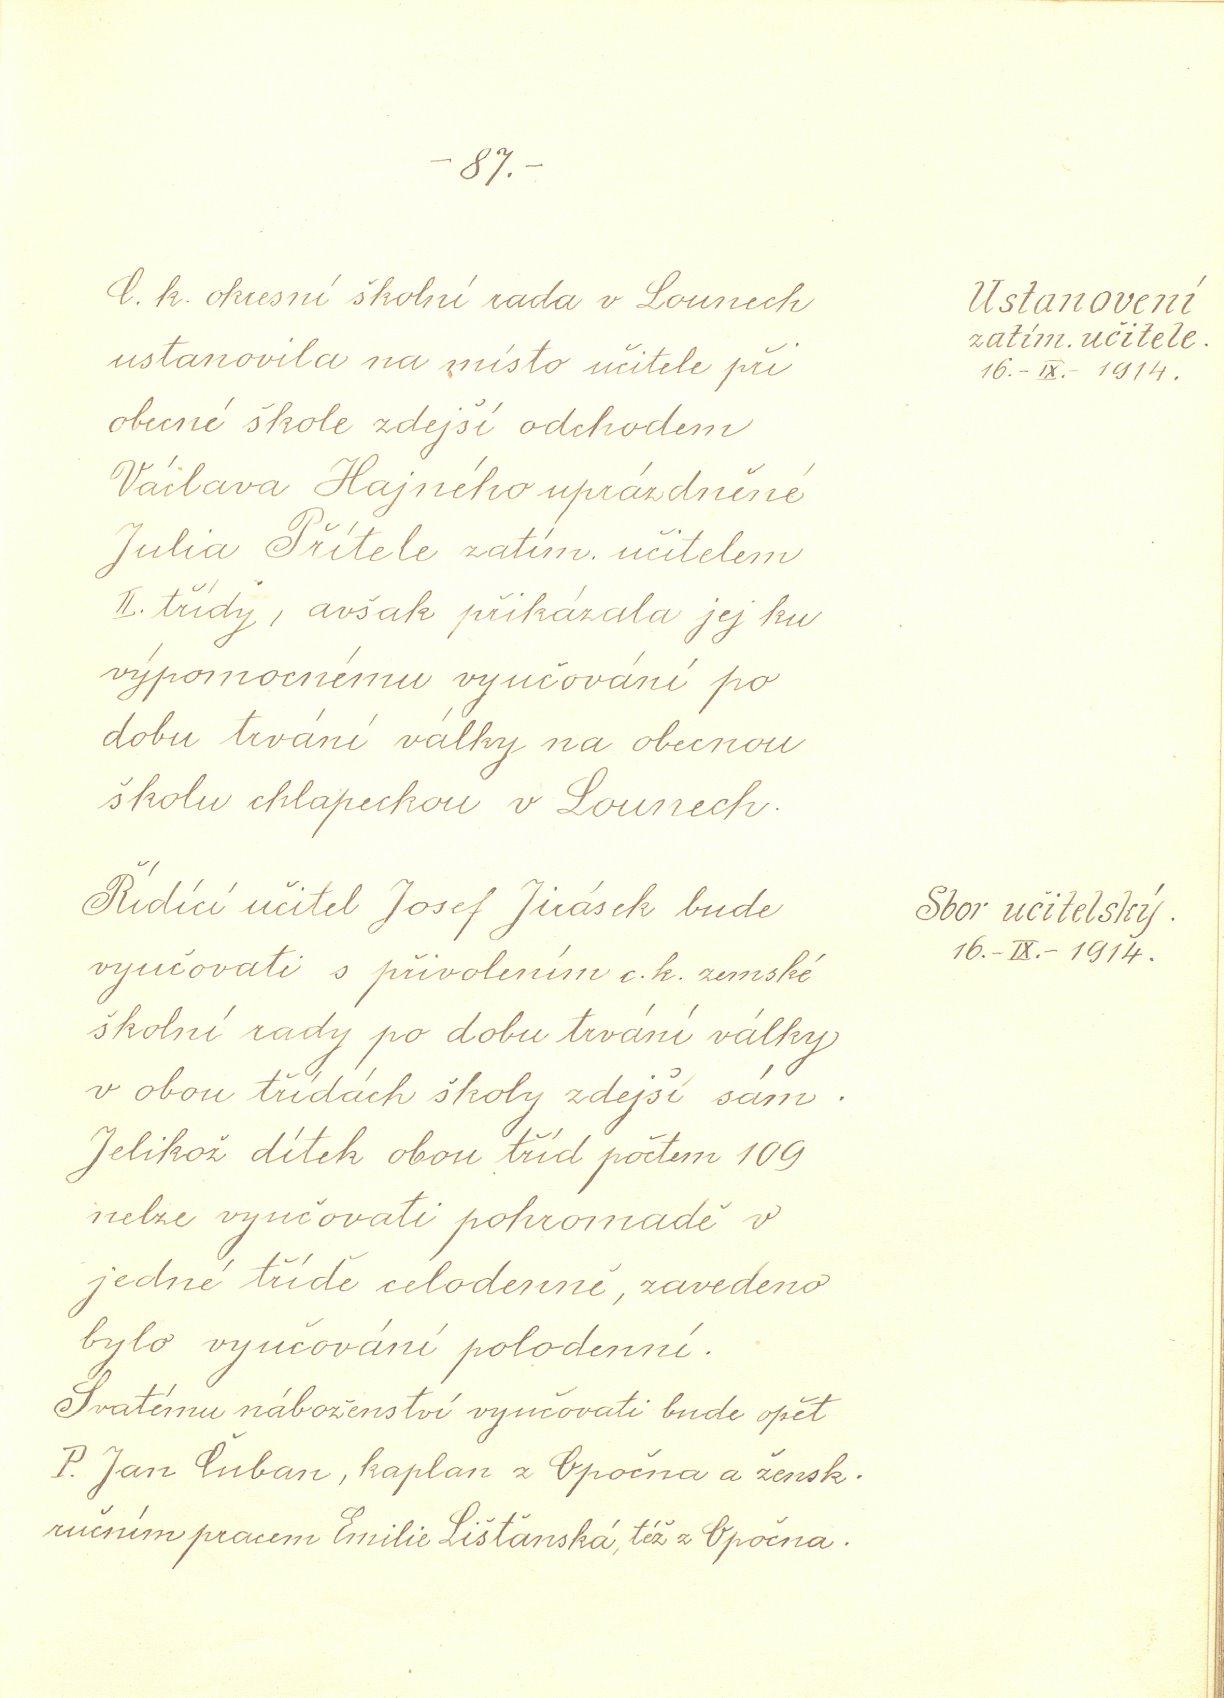 - 87. -
C. k. okresní školní rada v Lounech
ustanovila na místo učitele při
obecné škole zdejší odchodem
Václava Hajného uprázdněné
Julia Přítele zatím. učitelem
II. třídy, avšak přikázala jej ku
výpomocnému vyučování po
dobu trvání války na obecnou
školu chlapeckou v Lounech.
Ustanovení
zatím. učitele.
16. - IX. - 1914.
Řídící učitel Josef Jirásek bude
vyučovati s přivolením c. k. zemské
školní rady po dobu trvání války
v obou třídách školy zdejší sám.
Jelikož dítek obou tříd počtem 109
nelze vyučovati pohromadě v
jedné třídě celodenně, zavedeno
bylo vyučování polodenní.
Svatému náboženství vyučovati bude opět
P. Jan Čuban, kaplan z Opočna a žensk.
ručním pracem Emilie Lišťanská, též z Opočna.
Sbor učitelský.
16. - IX. - 1914.